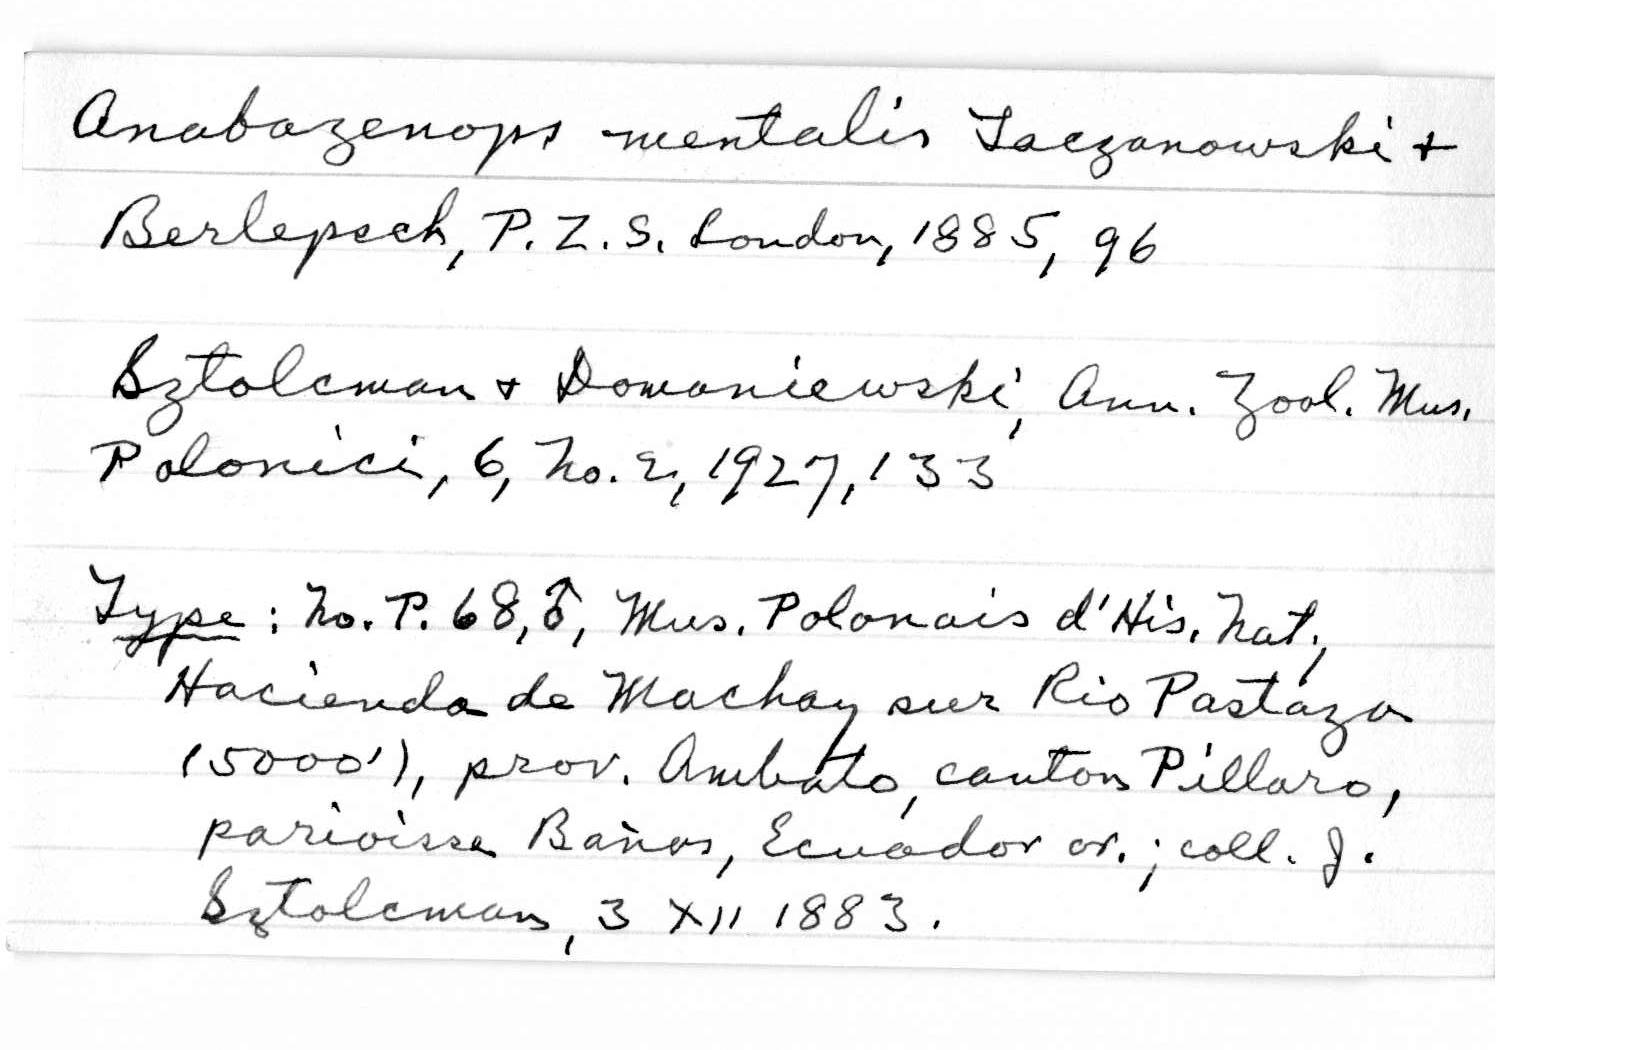 Anabazenops mentalis Taczanowski +
Berlepsch, P. Z. S. London, 1885, 96
Sztolcman + Domaniewski, Ann. Zool. Mus.
Polonici, 6, No. 2, 1927, 133
Type : No. P. 68, ♂, Mus. Polonais d'His. Nat.,
Hacienda de Machay sur Rio Pastaza
(5000'), prov. Ambato, canton Pillaro,
parioisse Baños, Ecuador or. ; coll. J.
Sztolcman, 3 XII 1883.